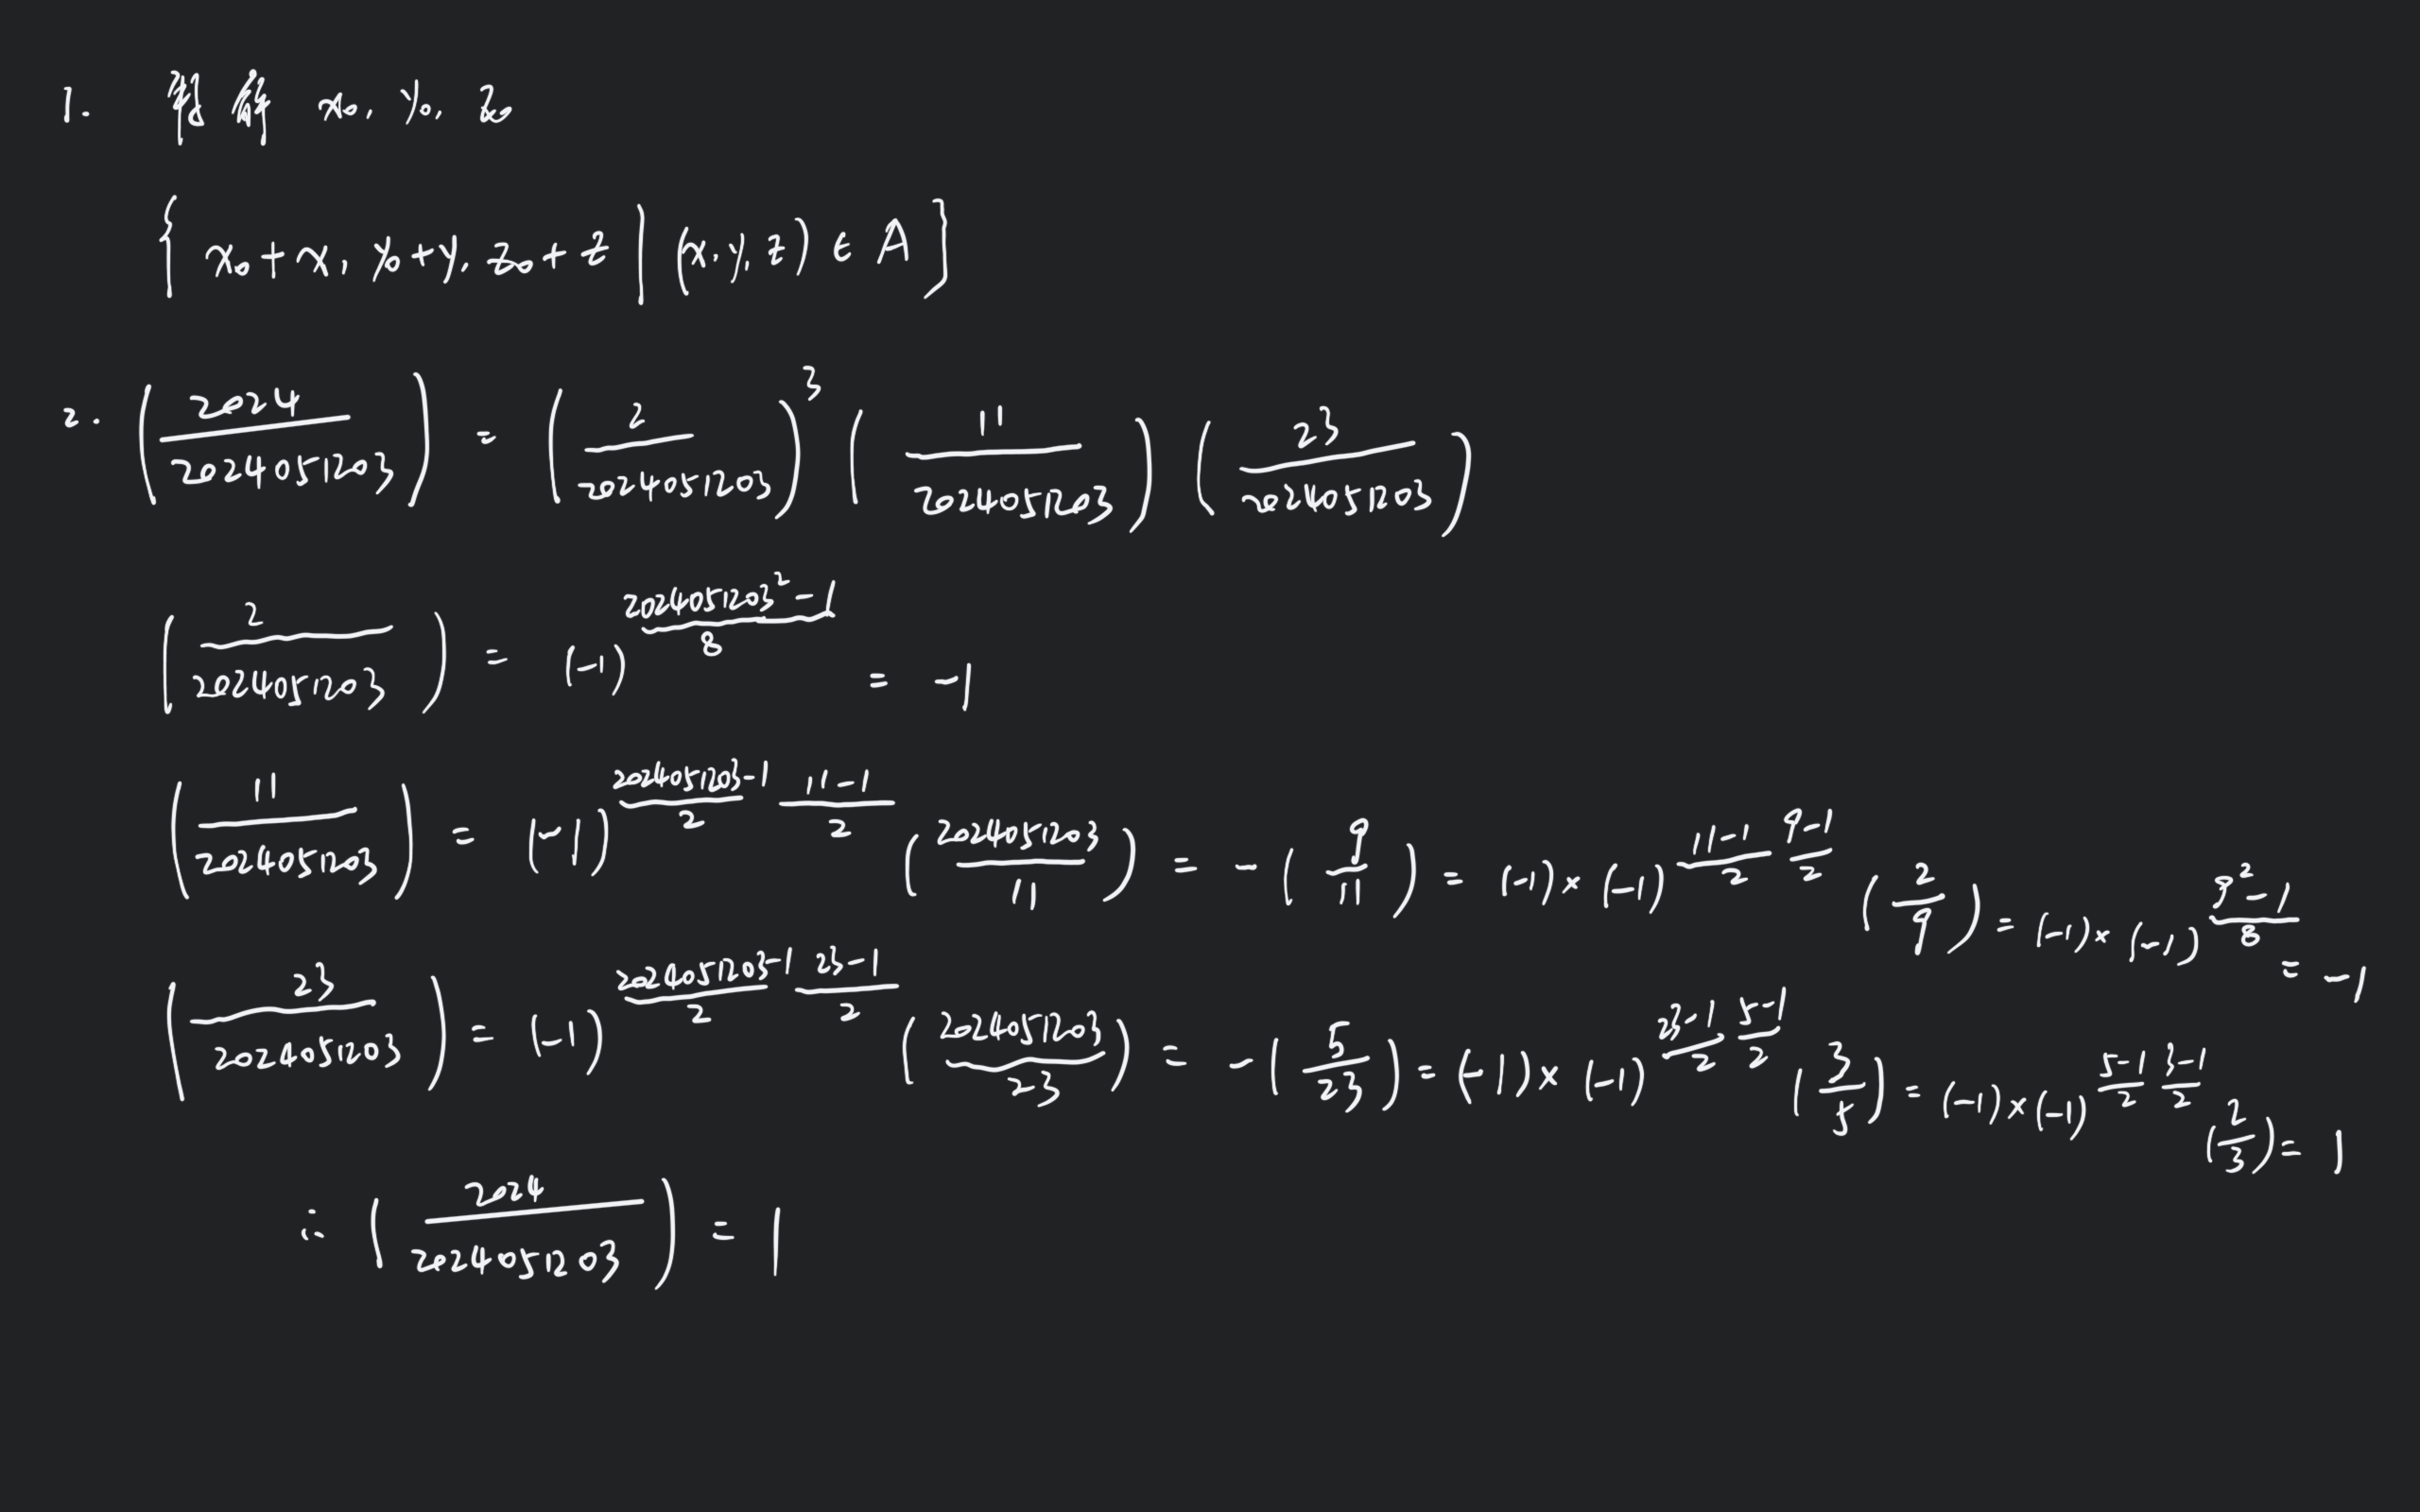 1. 特解 x₀, y₀, z₀
{ x₀+x, y₀+y, z₀+z | (x, y, z) ∈ A }
2. (2024/2024051203) = (2/2024051203)³ (11/2024051203) (23/2024051203)
(2/2024051203) = (-1)^((2024051203²-1)/8) = -1
(11/2024051203) = (-1)^((2024051203-1)/2 (11-1)/2) (2024051203/11) = -(9/11) = (-1)×(-1)^((11-1)/2 (9-1)/2) (2/9) = (-1)×(-1)^((9²-1)/8) = -1
(23/2024051203) = (-1)^((2024051203-1)/2 (23-1)/2) (2024051203/23) = -(5/23) = (-1)×(-1)^((23-1)/2 (5-1)/2) (3/5) = (-1)×(-1)^((5-1)/2 (3-1)/2) (2/3) = 1
∴ (2024/2024051203) = 1